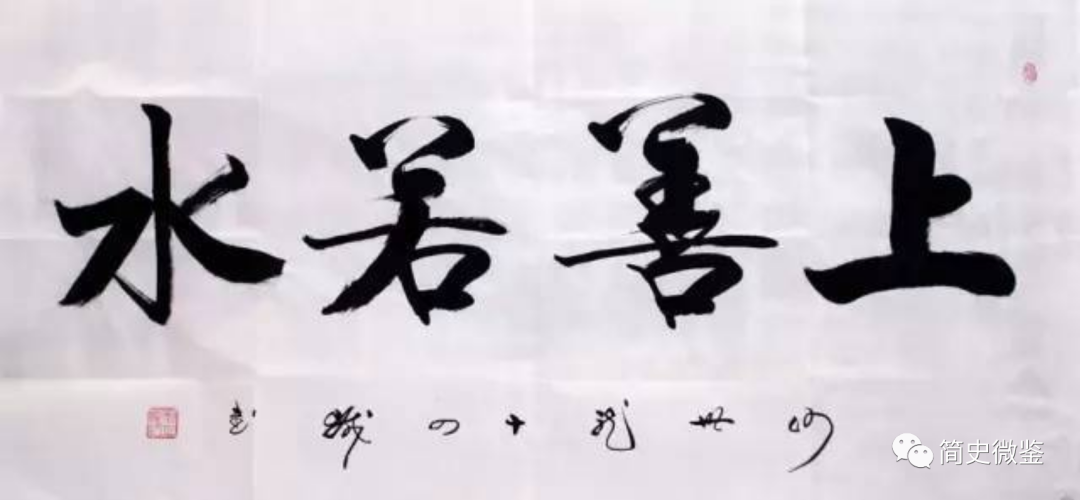 上善若水
世龍十四歲書
简史微鉴